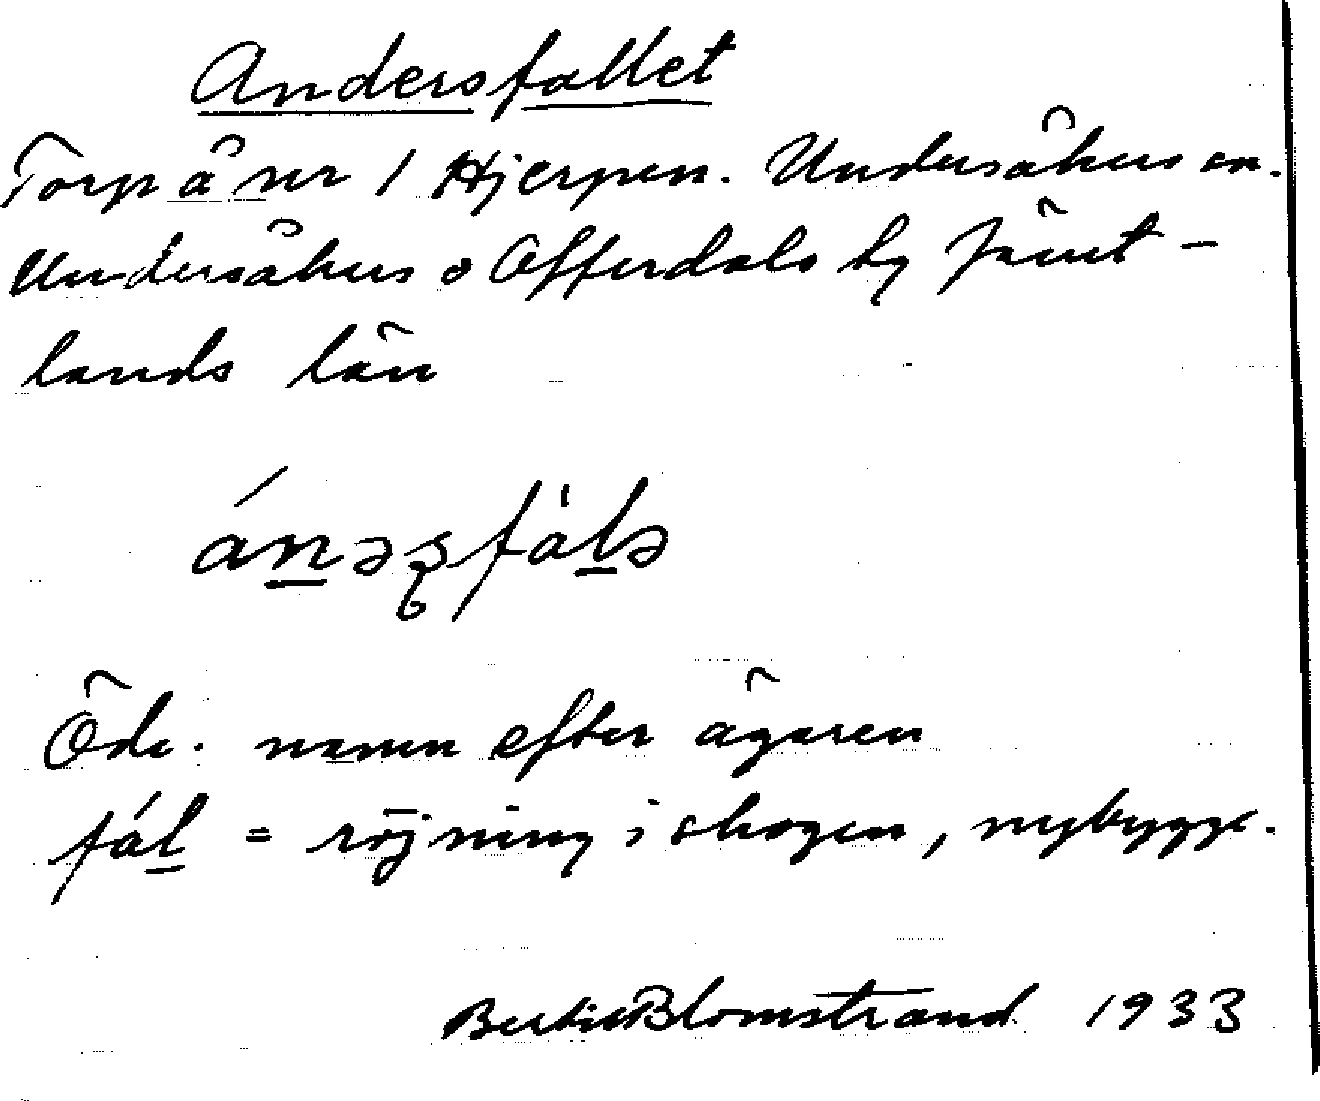 Andersfallet
Torp å nr 1 Hjerpen. Undersåkers sn.
Undersåkers o Offerdals tg Jämt-
lands län
án̲əʂfàl̲ə
Öde. namn efter ägaren
fál̲ = röjning i skogen, nybygge.
Bertil Blomstrand 1933